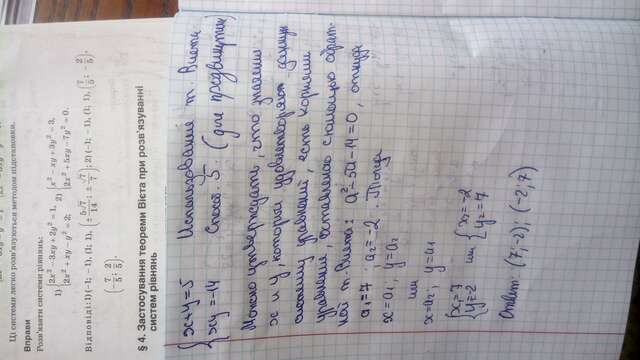 Ці системи легко розв'язуються методом підстановки.
Вправи
Розв'язати системи рівнянь:
1) { 2x² − 3xy + 2y² = 1, 2x² + xy − y² = 2; 2) { x² − xy + 3y² = 3, 2x² + 5xy − 7y² = 0.
Відповіді: 1) (−1; −1), (1; 1), (± 5√7/14; ± √7/7); 2) (−1; −1), (1; 1), (7/5; −2/5),
(−7/5; 2/5).
§ 4. Застосування теореми Вієта при розв'язуванні
систем рівнянь
{ x+y=5 Использование т. Виета
xy=-14 Способ 5. (для продвинутых)
Можно утверждать, что значени
x и y, которые удовлетворяют данную
систему уравнений, есть корнями
уравнения, составленого с помощью обрат-
ной т. Виета: a²-5a-14=0, откуда
a₁=7 a₂=-2. Тогда
x=a₁, y=a₂
или
x=a₂, y=a₁
{ x₁=7 y₁=-2 или { x₂=-2 y₂=7
Ответ: (7;-2), (-2;7)